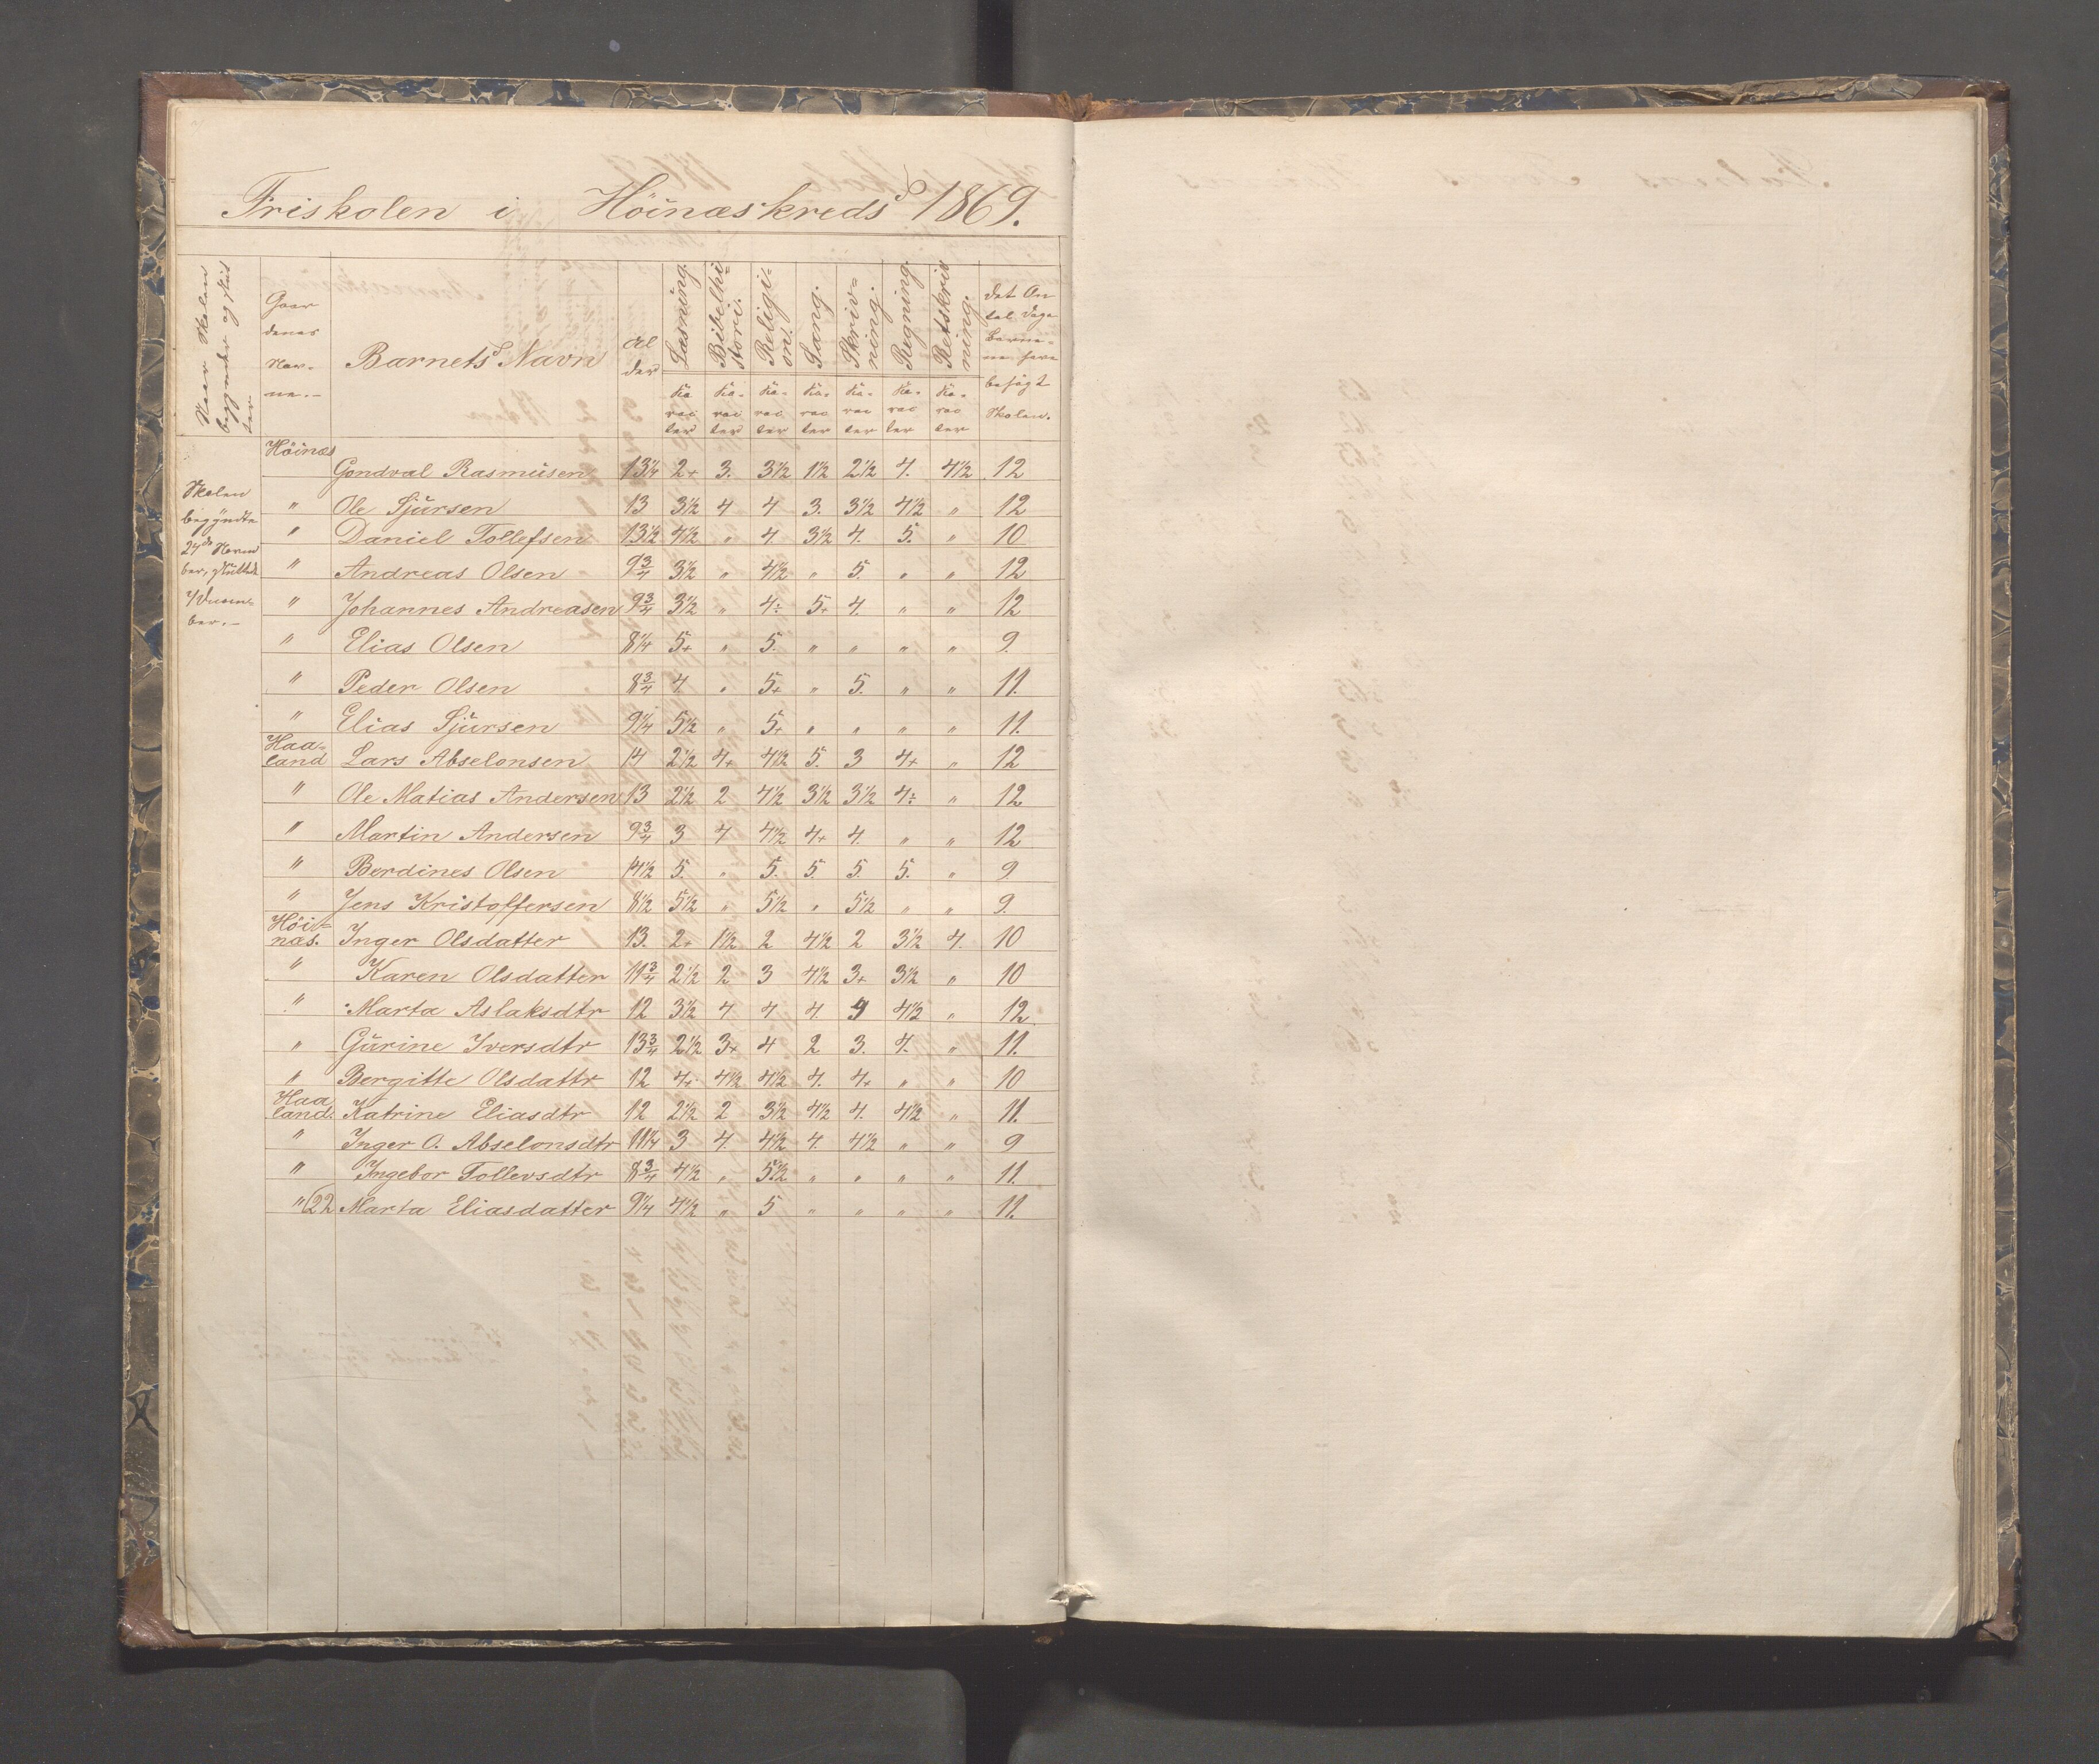 Friskolen i Höinæskreds 1869.
Naar Skolen begynder og slutter
Gaardenes Navne.-
Barnets Navn
Alder
Læsning. Karacter
Bibelhistori. Karacter
Religion. Karacter
Sang. Karacter
Skrivning. Karacter
Regning. Karacter
Retskrivning. Karacter
det Antal Dage Børnene have besøgt Skolen.
Skolen
begyndte
24de Novem
ber, sluttede
7 Decem
ber.-
Höinæs Gondval Rasmusen 13 1/4 2+ 3. 3 1/2 1 1/2 2 1/2 4. 4 1/2 12
" Ole Sjursen 13 3 1/2 4 4 3. 3 1/2 4 1/2 " 12
" Daniel Tollefsen 13 1/2 4 1/2 " 4. 3 1/2 4. 5. " 10
" Andreas Olsen 9 3/4 3 1/2 " 4 1/2 " 5. " " 12
" Johannes Andreasen 9 3/4 3 1/2 " 4÷ 5+ 4. " " 12
" Elias Olsen 8 1/4 5+ " 5. " " " " 9.
" Peder Olsen 8 3/4 4 " 5+ " 5. " " 11.
" Elias Sjursen 9 1/4 5 1/2 " 5+ " " " " 11.
Haaland Lars Abselonsen 14 2 1/2 4+ 4 1/2 5. 3 4+ " 12
" Ole Matias Andersen 13 2 1/2 2 4 1/2 3 1/2 3 1/2 4÷ " 12
" Martin Andersen 9 3/4 3 4 4 1/2 4+ 4. " " 12
" Berdines Olsen 14 1/2 5. " 5. 5. 5. 5. " 9
" Jens Kristoffersen 8 1/2 5 1/2 " 5 1/2 " 5 1/2 " " 9.
Höinæs. Inger Olsdatter 13. 2+ 1 1/2 2 4 1/2 2 3 1/2 4. 10
" Karen Olsdatter 11 3/4 2 1/2 2 3 4 1/2 3+ 3 1/2 " 10
" Marta Aslaksdtr 12 3 1/2 4 4 4. 4 1/2 " 12
" Gurine Iversdtr 13 3/4 2 1/2 3+ 4 2 3. 4. " 11.
" Bergitte Olsdattr 12 4+ 4 1/2 4 1/2 4. 4+ " " 10
Haaland. Katrine Eliasdtr 12 2 1/2 2 3 1/2 4 1/2 4. 4 1/2 " 11.
" Inger O. Abselonsdtr 11 1/4 3 4. 4 1/2 4. 4 1/2 " " 9
" Ingebor Tollevsdtr 8 3/4 4 1/2 " 5 1/2 " " " " 11.
" (22 Marta Eliasdatter 9 1/4 4 1/2 " 5 " " " " 11.